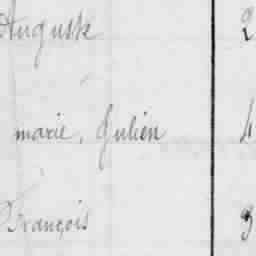 Auguste 2
marie, Julien 4
François 3